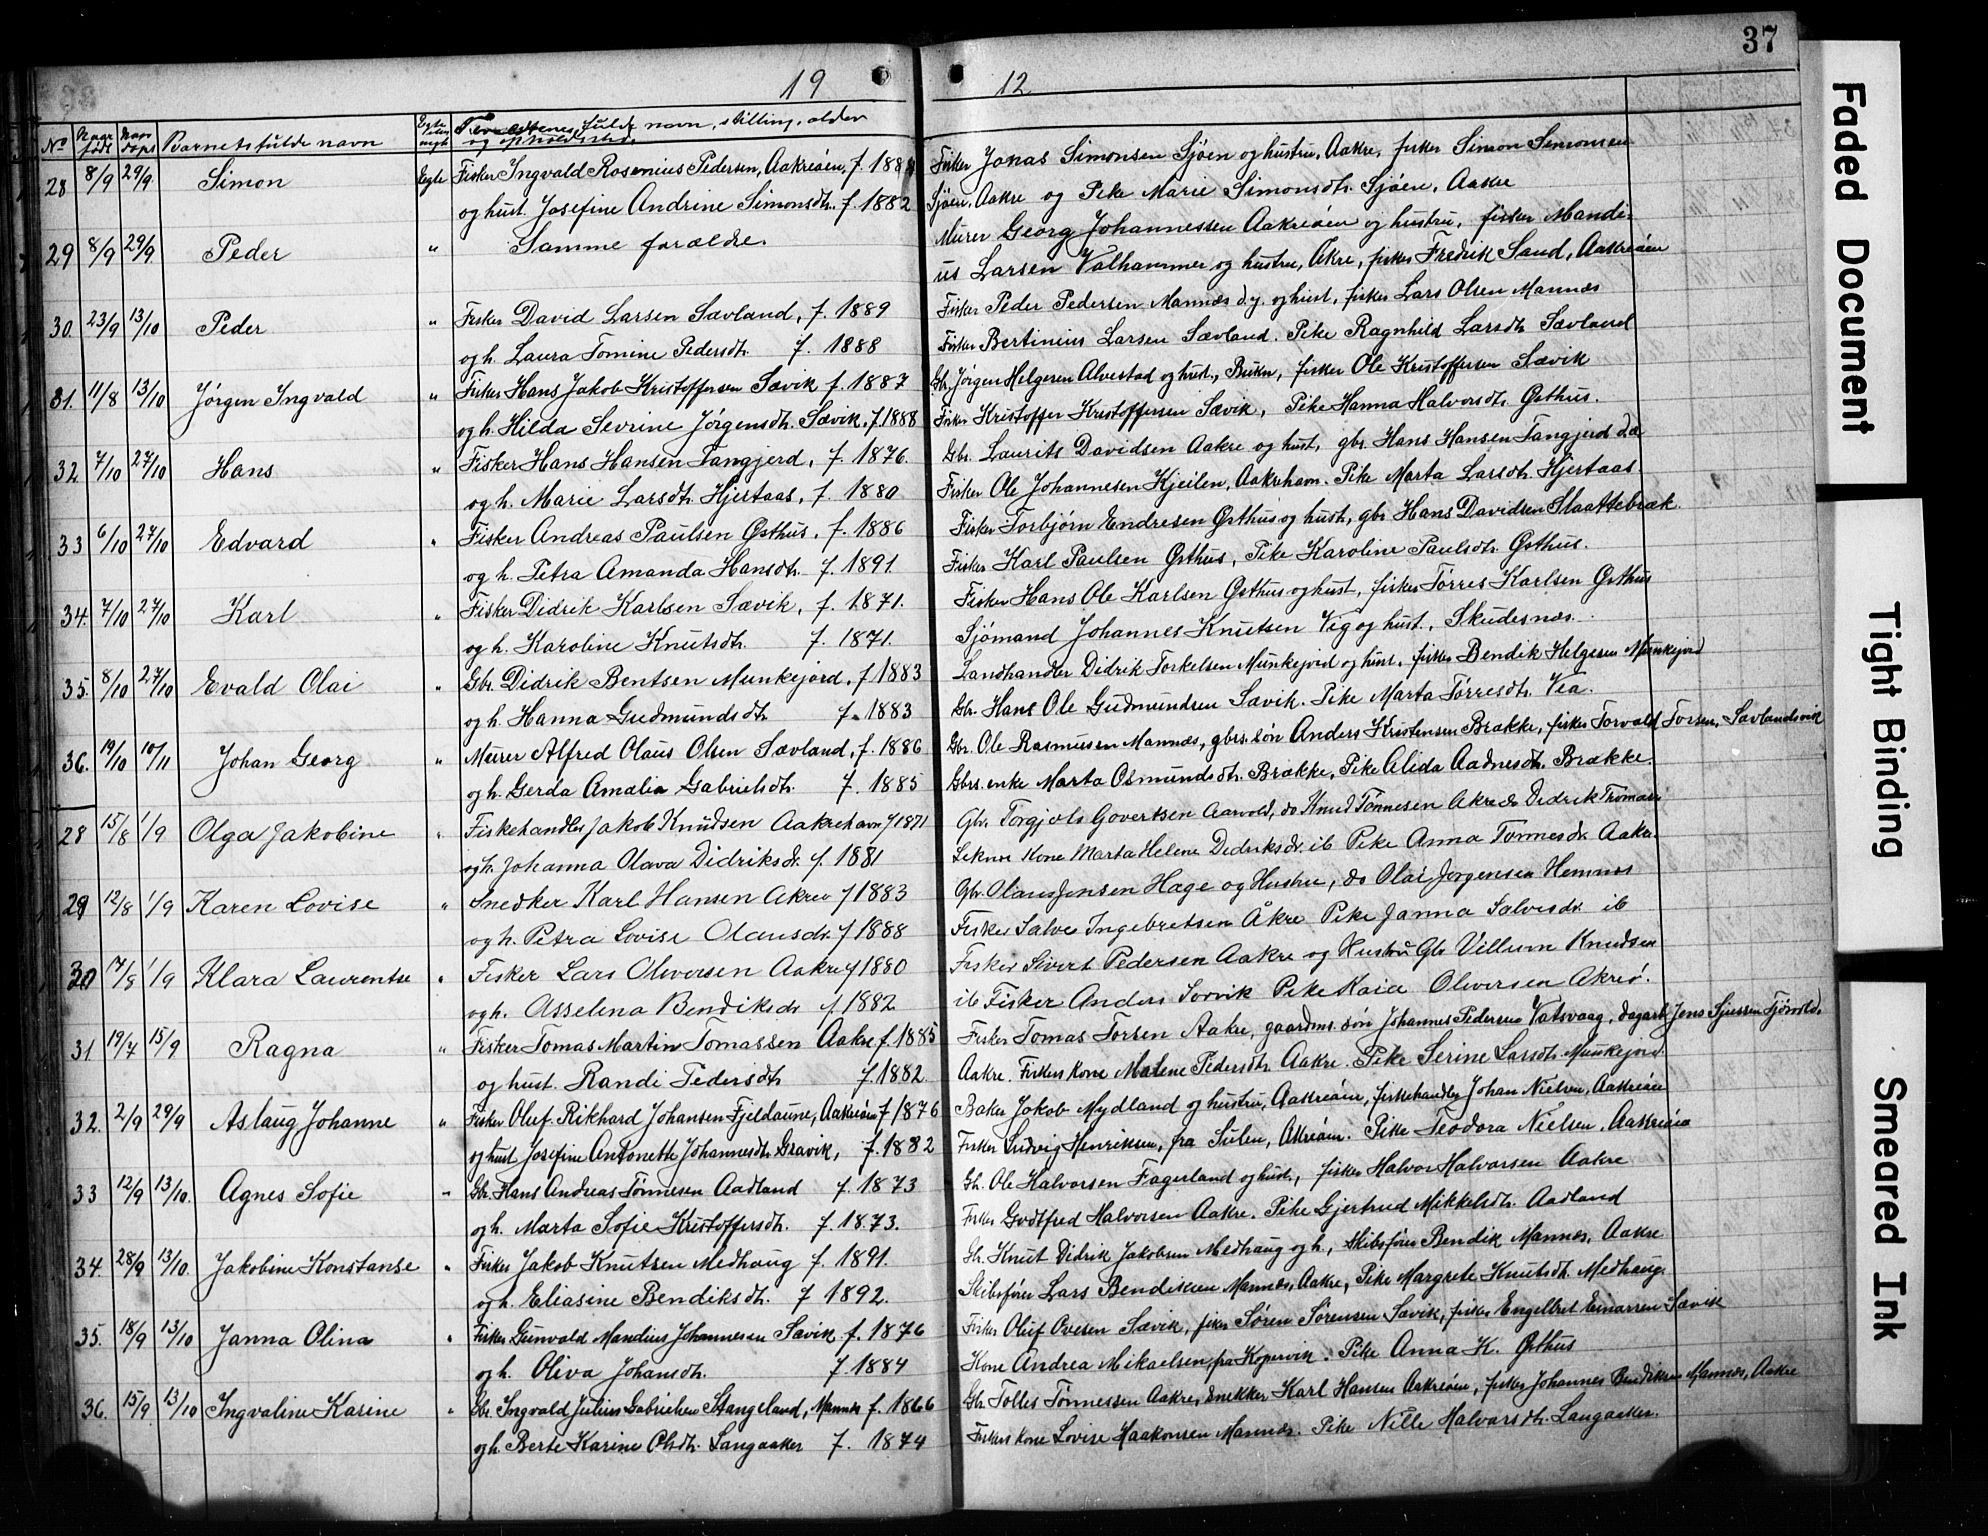 37
19 12
No Naar født Naar døpt Barnets fulde navn Egte eller uegte Forældrenes fulde navn, stilling, alder
og opholdssted.
28 8/9 29/9 Simon Egte Fisker Ingvald Rosenius Pedersen, Aakreøen, f. 188 Fisker Jonas Simonsen Sjøen og hustru, Aakre, fisker Simon Simonsen
og hust. Josefine Andrine Simonsdtr. f. 1882 Sjøen, Aakre og Pike Marie Simonsdtr. Sjøen, Aakre
29 8/9 29/9 Peder " Samme forældre. Murer Georg Johannessen Aakreøen og hustru, fisker Mandi-
us Larsen Valhammer og hustru, Åkre, fisker Fredrik Sand, Aakreøen
30. 23/9 13/10 Peder " Fisker David Larsen Sævland, f. 1889 Fisker Peder Pedersen Mannæs d.y. og hust, fisker Lars Olsen Mannæs
og h. Laura Tomine Pedersdtr. f. 1888 Fisker Bertinius Larsen Sævland. Pike Ragnhild Larsdtr. Sævland
31. 11/8 13/10 Jørgen Ingvald " Fisker Hans Jakob Kristoffersen Sævik f. 1887 Gbr. Jørgen Helgesen Alvestad og hust., Bukn, fisker Ole Kristoffersen Sævik
og h. Hilda Sevrine Jørgensdtr. Sævik, f. 1888 Fisker Kristoffer Kristoffersen Sævik, Pike Hanna Halvorsdtr. Østhus.
32 7/10 27/10 Hans " Fisker Hans Hansen Tangjerd, f. 1876. Gbr. Laurits Davidsen Aakre og hust, gbr. Hans Hansen Tangjerd d.æ
og h. Marie Larsdtr. Hjertaas, f. 1880 Fisker Ole Johannesen Kjeilen, Aakrehavn. Pike Marta Larsdtr. Hjertaas.
33 6/10 27/10 Edvard " Fisker Andreas Paulsen Østhus, f. 1886 Fisker Torbjørn Endresen Østhus og hust, gbr Hans Davidsen Slaattebræk.
og h. Petra Amanda Hansdtr. f. 1891. Fisker Karl Paulsen Østhus, Pike Karoline Paulsdtr. Østhus.
34. 7/10 27/10 Karl " Fisker Didrik Karlsen Sævik, f. 1871. Fisker Hans Ole Karlsen Østhus og hust, fisker Tørres Karlsen Østhus
og h. Karoline Knutsdtr. f. 1871. Sjømand Johannes Knutsen Vig og hust., Skudesnes.
35. 8/10 27/10 Evald Olai " Gbr. Didrik Bentsen Munkejord, f 1883 Landhandler Didrik Torkelsen Munkejord og hust, fisker Bendik Helgesen Munkejord
og h. Hanna Gudmundsdtr. f. 1883 Gbr. Hans Ole Gudmundsen Sævik. Pike Marta Tørresdtr. Vea.
36. 19/10 10/11 Johan Georg " Murer Alfred Olaus Olsen Sævland, f. 1886 Gbr. Ole Rasmusen Mannæs, gbrs. søn Anders Kristensen Brække, fisker Torvald Torsen, Sævlandsvik
og h. Gerda Amalia Gabrielsdtr. f. 1885 Gbrs. enke Marta Osmundsdtr. Brække, Pike Alida Aadnesdtr. Brække.
28 15/8 1/9 Olga Jakobine " Fiskehandler Jakob Knudsen Aakrehavn f 1871 Gbr. Torgjols Govertsen Aarvold, do Knud Tønnesen Akre do Didrik
og h. Johanna Olava Didriksdr. f. 1881 Kone Marta Helene Didriksdr. ib Pike Anna Tønnesdr. Aakre.
29 12/8 1/9 Karen Lovise " Snedker Karl Hansen Akreø f 1883 Gbr. Olaus Jensen Hage og Hustru, do Olai Jørgensen Hemnes
og h. Petra Lovise Olausdr. f 1888 Fisker Salve Ingebretsen Åkre Pike Janna Salvesdr. ib
30 17/8 1/9 Klara Laurentse " Fisker Lars Oliversen Aakre f 1880 Fisker Sivert Pedersen Aakre og Hustru Gbr Villum Knudsen
og h. Asselena Bendiksdr f. 1882 ib Fisker Anders Sørvik Pike Kaia Oliversen Akreø.
31 19/7 15/9 Ragna " Fisker Tomas Martin Tomassen Aakre f. 1885 Fisker Tomas Torsen Aakre, gaardms. søn Johannes Pedersen Vatsvaag, dagarb. Jens Sjursen Fjørvold,
og hust. Randi Pedersdtr f. 1882. Aakre. Fiskers kone Malene Pedersdtr. Aakre. Pike Serine Larsdtr. Munkejord.
32. 2/9 29/9 Aslaug Johanne " Fisker Oluf Rikhard Johansen Fjeldaune, Aakreøen f 1876 Baker Jakob Mydland og hustru, Aakreøen, fiskehandler Johan Nielsen, Aakreøen
og hust Josefine Antonette Johannesdtr. Gravik, f. 1882 Fisker Ludvig Henriksen, fra Sulen, Akreøen. Pike Teodora Nielsen, Aakreøen
33 12/9 13/10. Agnes Sofie " Gbr. Hans Andreas Tønnesen Aadland f. 1873 Gbr. Ole Halvorsen Fagerland og hust., fisker Halvor Halvorsen Aakre
og h. Marta Sofie Kristoffersdtr. f. 1873. Fisker Godtfred Halvorsen Aakre. Pike Gjertrud Mikkelsdtr. Aadland
34. 28/9 13/10. Jakobine Konstanse " Fisker Jakob Knutsen Medhaug f. 1891. Gbr. Knut Didrik Jakobsen Medhaug og h, skibsfører Bendik Mannæs, Aakre
og h. Eliasine Bendiksdtr. f 1892. Skibsfører Lars Bendiksen Mannæs, Aakre, Pike Margrete Knutsdtr. Medhaug.
35. 18/9 13/10 Janna Olina " Fisker Gunvald Mandius Johannesen Sævik f. 1876 Fisker Oluf Ovesen Sævik, fisker Søren Sørensen Sævik, fisker Engelbret Einarsen Sævik
og h. Oliva Johansdtr. f. 1884 Kone Andrea Mikaelsen, fra Kopervik. Pike Anna K. Østhus
36. 15/9. 13/10 Ingvaline Karine " Gbr. Ingvald Julius Gabrielsen Stangeland, Mannæs f. 1866 Gbr. Tolles Tønnessen Aakre, snekker Karl Hansen Aakreøen, fisker Johannes Bendiksen Mannæs, Aakre
og h. Berte Karine Olsdtr. Langaaker f. 1874 Fiskers kone Lovise Haakonsen Mannæs. Pike Nille Halvorsdtr. Langaaker.
Faded Document
Tight Binding
Smeared Ink